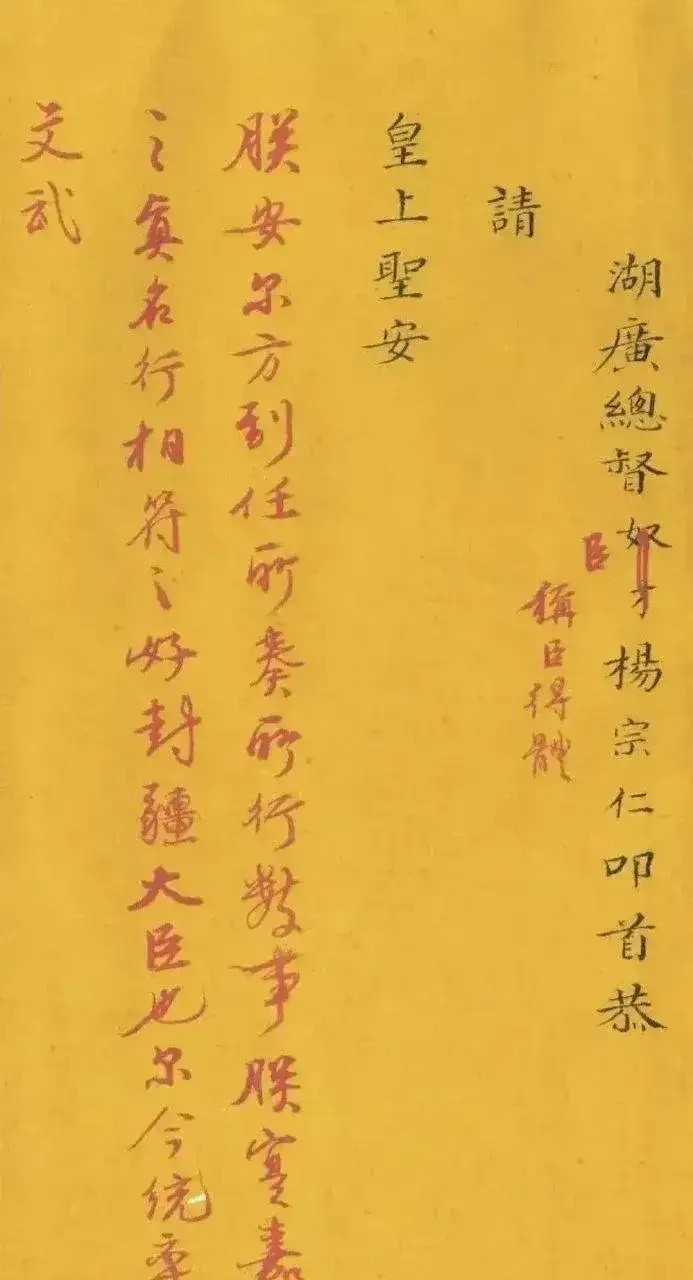 湖廣總督奴才楊宗仁叩首恭
臣
稱臣得體
請
皇上聖安
朕安尔方到任所奏所行數事朕實嘉
之眞名行相符之好封疆大臣也尔今統率
文武